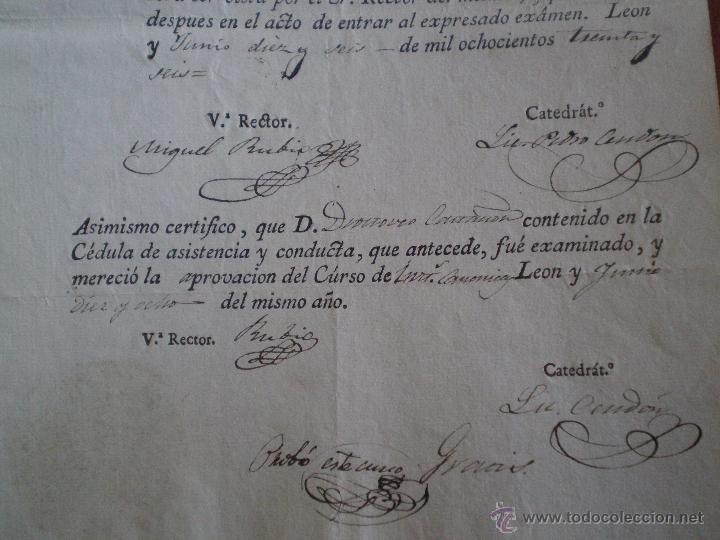 despues en el acto de entrar al expresado exámen. Leon
y Junio diez y seis - de mil ochocientos treinta y
seis=
V.ª Rector.
Catedrát.º
Miguel Rubio
Lic. Pedro Cendon
Asimismo certifico, que D. contenido en la
Cédula de asistencia y conducta, que antecede, fué examinado, y
mereció la aprovacion del Curso de Inst.s Canonicas Leon y Junio
diez y ocho del mismo año.
V.ª Rector. Rubio
Catedrát.º
Lic. Cendón
Probó este curso Gracis.
© todocoleccion.net
www.todocoleccion.net